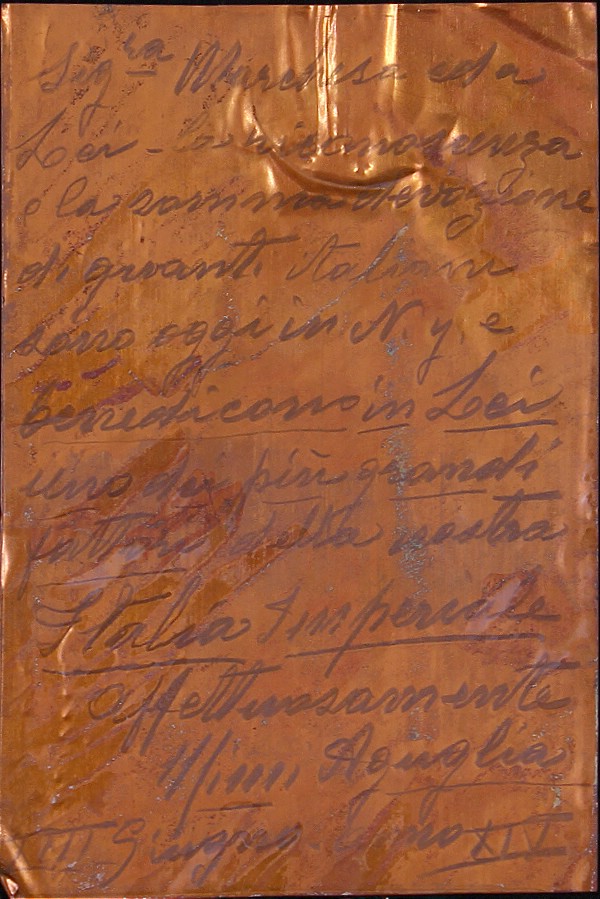 Sigra Marchesa ed a
Lei - la riconoscenza
e la somma devozione
di quanti Italiani
sono oggi in N. Y. e
benedicono in Lei
uno dei più grandi
fattori della nostra
Italia Imperiale
Affettuosamente
Aguglia
Giugno. Anno XIV